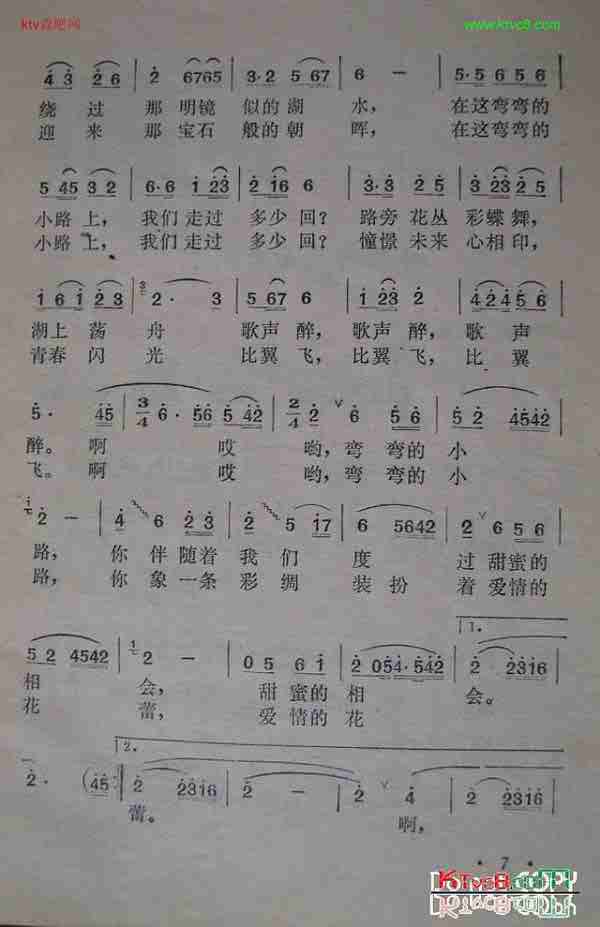 ktv霖吧网
www.ktvc8.com
4 3 2 6 | 2 6765 | 3·2 5 67 | 6 – | 5·5 5 5 6 |
绕过 那明镜 似的湖 水， 在这弯弯的
迎来 那宝石 般的朝 晖， 在这弯弯的
5 45 3 2 | 6·6 1 23 | 2 16 6 | 3·3 2 3 | 23 2 5 |
小路上， 我们走过 多少回？ 路旁花丛 彩蝶舞，
小路上， 我们走过 多少回？ 憧憬未来 心相印，
1 6 1 23 | 2· 3 | 5 67 6 | 1 23 2 | 4 2 4 5 6 |
湖上荡 舟 歌声醉， 歌声醉， 歌声
青春闪 光 比翼飞， 比翼飞， 比翼
5· 45 | 3/4 6· 56 5 42 | 2/4 2 ∨ 6 5 6 | 5 2 4542 |
醉。啊 哎 哟，弯弯的小
飞。啊 哎 哟，弯弯的小
2 – | 4 6 2 3 | 2 5 17 | 6 5642 | 2 ∨ 6 5 6 |
路， 你伴随着 我们 度 过甜蜜的
路， 你象一条 彩绸 装扮 着爱情的
1.
5 2 4542 | 2 – | 0 5 6 1 | 2 054· 542 | 2 2316 |
相 会， 甜蜜的相 会。
花 蕾， 爱情的花
2.
2· (45 :| 2 2316 | 2 – | 2 ∨ 4 | 2 2316 |
蕾。 啊，
· 7 ·
KTvC8